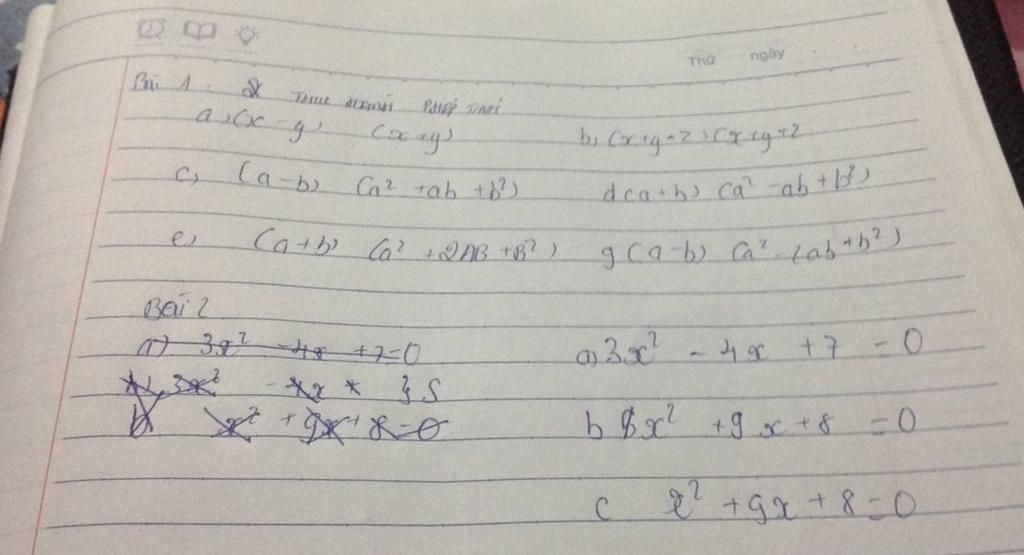 Thứ ngày
Bài 1.
a, (x - y) (x + y) b, (x+y+z)(x+y+z
c, (a-b) (a² +ab +b²) d (a+b) (a² -ab +b²)
e) (a+b) (a² +2AB +B²) g (a-b) (a² - 2ab +b²)
Bài 2
a) 3x² - 4x +7=0 a) 3x² - 4x +7 = 0
3x² - 4x
x² + 9x + 8=0 b 8x² +9x +8 =0
c x² +9x +8=0